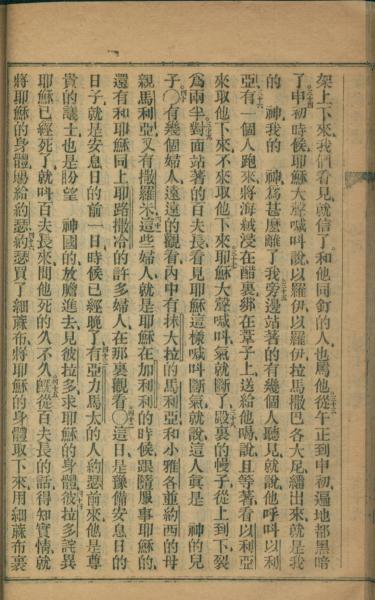 架上下來我們看見就信了和他同釘的人也罵他從午正到申初遍地都黑暗
了申初時候耶穌大聲喊叫說以羅伊以羅伊拉馬撒巴各大尼繙出來就是我
的 神我的 神爲甚麼離了我旁邊站著的有幾個人聽見就說他呼叫以利
亞有一個人跑來將海絨浸在醋裏綁在葦子上送給他喝說且等著看以利亞
來取他下來不來取他下來耶穌大聲喊叫氣就斷了殿裏的幔子從上到下裂
爲兩半對面站著的百夫長看見耶穌這樣喊叫斷氣就說這人眞是 神的兒
子〇有幾個婦人遠遠的觀看內中有抹大拉的馬利亞和小雅各並約西的母
親馬利亞又有撒羅米這些婦人就是耶穌在加利利的時候跟隨服事耶穌的
還有和耶穌同上耶路撒冷的許多婦人在那裏觀看〇這日是豫備安息日的
日子就是安息日的前一日時候已經晚了有亞力馬太的人約瑟前來他是尊
貴的議士也是盼望 神國的放膽進去見彼拉多求耶穌的身體彼拉多詫異
耶穌已經死了就叫百夫長來問他死的久不久旣從百夫長的話得知實情就
將耶穌的身體賜給約瑟約瑟買了細蔴布將耶穌的身體取下來用細蔴布裹